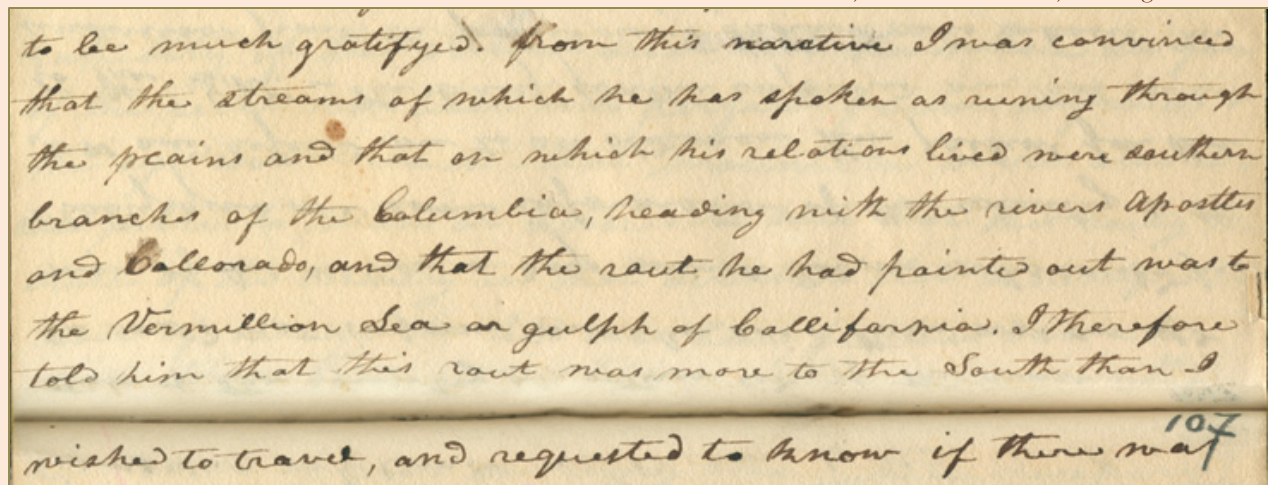 to be much gratifyed. from this naretive I was convinced
that the streams of which he has spoken as runing through
the plains and that on which his relations lived were southern
branches of the Columbia, heading with the rivers Apostles
and Collorado, and that the rout he had pointed out was to
the Vermillion Sea or gulph of Callifornia. I therefore
told him that this rout was more to the South than I
107
wished to travel, and requested to know if there was